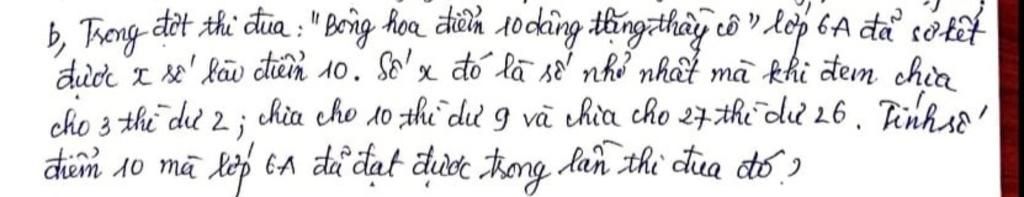 b, Trong đợt thi đua: "Bông hoa điểm 10 dâng tặng thầy cô" lớp 6A đã sơ kết
được x số lần điểm 10. Số x đó là số nhỏ nhất mà khi đem chia
cho 3 thì dư 2; chia cho 10 thì dư 9 và chia cho 27 thì dư 26. Tính số
điểm 10 mà lớp 6A đã đạt được trong lần thi đua đó?